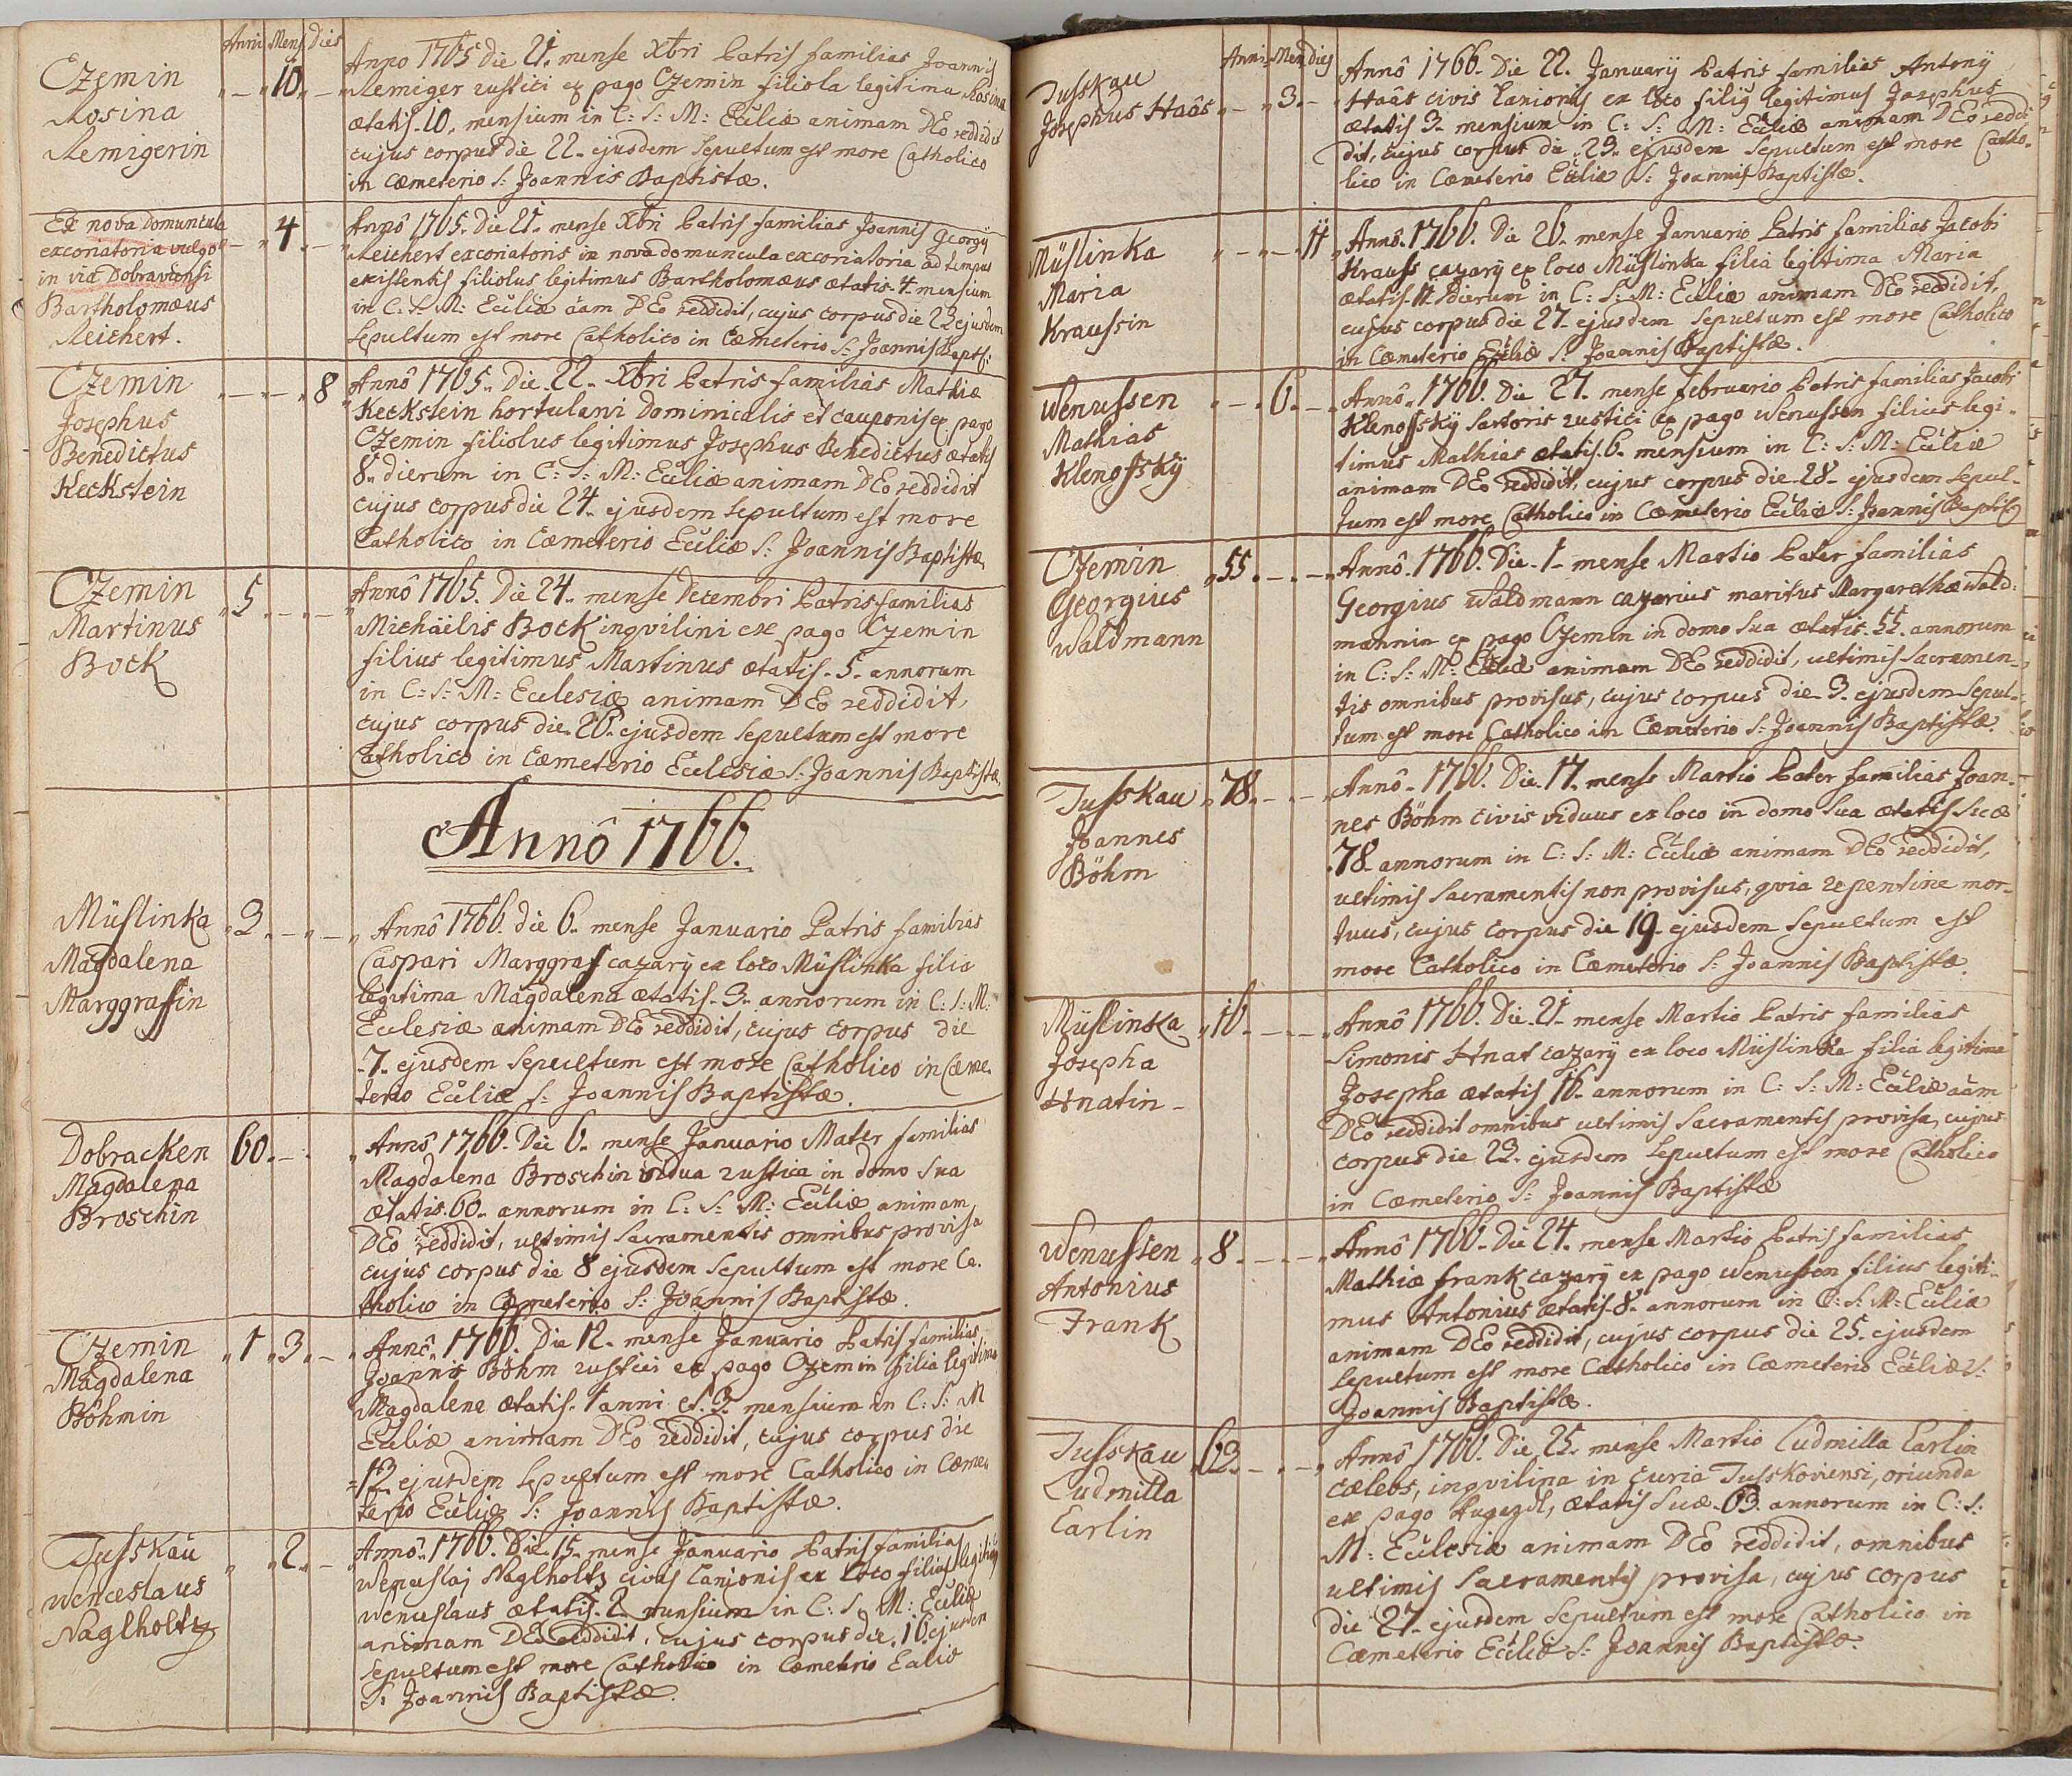 Anni Mens Dies
Czemin
Rosina
Remigerin
10
Anno 1765 die 21. mense Xbri Patris familias Joannis
Remiger rustici ex pago Czemin filiola legitima Rosina
ætatis 10. mensium in C: S: M: Eccliæ animam DEo reddidit
cujus corpus die 22. ejusdem Sepultum est more Catholico
in Cæmeterio S: Joannis Baptistæ.
Ex nova domuncula
excoriatoria vulgo
in via Dobraviensi
Bartholomæus
Reichert.
4
Annô 1765. Die 21. mense Xbri Patris familias Joannis Georgÿ
Reichert excoriatoris in nova domuncula excoriatoria ad tempus
existentis filiolus legitimus Bartholomæus ætatis 4. mensium
in C: S: M: Eccliæ aam DEo reddidit, cujus corpus die 23 ejusdem
Sepultum est more Catholico in Cæmeterio S: Joannis Bapts:
Czemin
Josephus
Benedictus
Keckstein
8
Annô 1765. Die 22. Xbri Patris familias Mathiæ
Keckstein hortulani Dominicalis et cauponis ex pago
Czemin filiolus legitimus Josephus Benedictus ætatis
8. dierum in C: S: M: Eccliæ animam DEo reddidit
cujus corpus die 24. ejusdem Sepultum est more
Catholico in Cæmeterio Eccliæ S: Joannis Baptistæ
Czemin
Martinus
Bock
5
Annô 1765. Die 24. mense Decembri Patris familias
Michäelis Bock inqvilini ex pago Czemin
filius legitimus Martinus ætatis. 5. annorum
in C: S: M: Ecclesiæ animam DEo reddidit,
cujus corpus die. 26. ejusdem Sepultum est more
Catholico in Cæmeterio Ecclesiæ S: Joannis Baptistæ
Annô 1766.
Müslinka
Magdalena
Marggraffin
3
Annô 1766. die 6. mense Januario Patris familias
Caspari Marggraf cazarÿ ex loco Müslinka filia
legitima Magdalena ætatis. 3. annorum in C: S: M:
Ecclesiæ animam DEo reddidit, cujus corpus die
7. ejusdem Sepultum est more Catholico in Cæme-
terio Eccliæ S: Joannis Baptistæ.
Dobracken
Magdalena
Broschin
60
Annô 1766. Die 6. mense Januario Mater familias
Magdalena Broschin vidua rustica in domo Sua
ætatis. 60. annorum in C: S: M: Eccliæ animam
DEo reddidit, ultimis Sacramentis omnibus provisa
cujus corpus die 8 ejusdem Sepultum est more Ca-
tholico in Cæmeterio S: Joannis Baptistæ.
Czemin
Magdalena
Böhmin
1 3
Annô. 1766. Die 12. mense Januario Patris familias
Joannis Böhm rustici ex pago Czemin filia legitima
Magdalena ætatis. 1 anni et. 3. mensium in C: S: M
Eccliæ animam DEo reddidit, cujus corpus die
13. ejusdem Sepultum est more Catholico in Cæme-
terio Eccliæ S: Joannis Baptistæ.
Tusskau
Wenceslaus
Naglholtz
2
Annô. 1766. Die. 15. mense Januario Patris familias
Wenceslaj Naglholtz civis Lanionis ex loco filius legitimus
Wenceslaus ætatis. 2. mensium in C: S: M: Eccliæ
animam DEo reddidit, cujus corpus die. 16. ejusdem
Sepultum est more Catholico in Cæmeterio Eccliæ
S: Joannis Baptistæ.
Anni Men dies
Tusskau
Josephus Haâs
3
Annô 1766. Die 22. Januarÿ Patris familias Antonÿ
Haâs civis Lanionis ex loco filiÿ legitimus Josephus
ætatis 3. mensium in C: S: M: Eccliæ animam DEo reddi-
dit, cujus corpus die 23. ejusdem Sepultum est more Catho-
lico in Cæmeterio Eccliæ S: Joannis Baptistæ.
Müslinka
Maria
Kraussin
11
Annô. 1766. Die 26. mense Januario Patris familias Jacobi
Krauss cazarÿ ex loco Müslinka filia legitima Maria
ætatis. 11. dierum in C: S: M: Eccliæ animam DEo reddidit,
cujus corpus die 27. ejusdem Sepultum est more Catholico
in Cæmeterio Eccliæ S: Joannis Baptistæ.
Wenussen
Mathias
Klenofskÿ
6
Annô. 1766. Die 27. mense februario Patris familias Jacobi
Klenofskÿ Sartoris rustici ex pago Wenussen filius legi-
timus Mathias ætatis. 6. mensium in C: S: M: Eccliæ
animam DEo reddidit, cujus corpus die 28. ejusdem Sepul-
tum est more Catholico in Cæmeterio Eccliæ S: Joannis Baptistæ
Czemin
Georgius
Waldmann
55
Annô. 1766. Die. 1. mense Martio Pater familias
Georgius Waldmann cazarius maritus Margarethæ Wald:
mannin ex pago Czemin in domo Sua ætatis. 55. annorum
in C: S: M: Eccliæ animam DEo reddidit, ultimis Sacramen-
tis omnibus provisus, cujus corpus die 3. ejusdem Sepul-
tum est more Catholico in Cæmeterio S: Joannis Baptistæ.
Tusskau
Joannes
Böhm
78
Annô. 1766. Die. 17. mense Martio Pater familias Joan-
nes Böhm civis viduus ex loco in domo Sua ætatis Suæ
78. annorum in C: S: M: Eccliæ animam DEo reddidit,
ultimis Sacramentis non provisus, qvia repentine mor-
tuus, cujus corpus die 19. ejusdem Sepultum est
more Catholico in Cæmeterio S: Joannis Baptistæ.
Müslinka
Josepha
Hnatin
16
Annô 1766. Die. 21. mense Martio Patris familias
Simonis Hnat cazarÿ ex loco Müslinka filia legitima
Josepha ætatis 16. annorum in C: S: M: Eccliæ aam
DEo reddidit omnibus ultimis Sacramentis provisa, cujus
corpus die 23. ejusdem Sepultum est more Catholico
in Cæmeterio S: Joannis Baptistæ
Wenussen
Antonius
Frank
8
Annô 1766. Die 24. mense Martio Patris familias
Mathiæ frank cazarÿ ex pago Wenussen filius legiti-
mus Antonius ætatis. 8. annorum in C: S: M: Eccliæ
animam DEo reddidit, cujus corpus die 25. ejusdem
Sepultum est more Catholico in Cæmeterio Eccliæ S:
Joannis Baptistæ.
Tusskau
Ludmilla
Earlin
63
Annô 1766. Die. 25. mense Martio Ludmilla Earlin
cælebs, inqvilina in Curia Tusskoviensi, oriunda
ex pago ætatis Suæ. 63. annorum in C: S:
M: Ecclesiæ animam DEo reddidit, omnibus
ultimis Sacramentis provisa, cujus corpus
die 27. ejusdem Sepultum est more Catholico in
Cæmeterio Eccliæ S: Joannis Baptistæ.